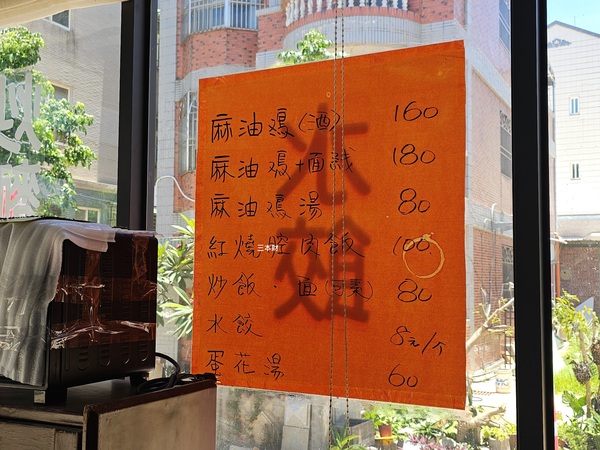 麻油鳮(酒) 160
麻油鳮+面線 180
麻油鳮湯 80
紅燒腔肉飯 100
炒飯·面(可素) 80
水餃 8元/个
蛋花湯 60
水餃
三本財